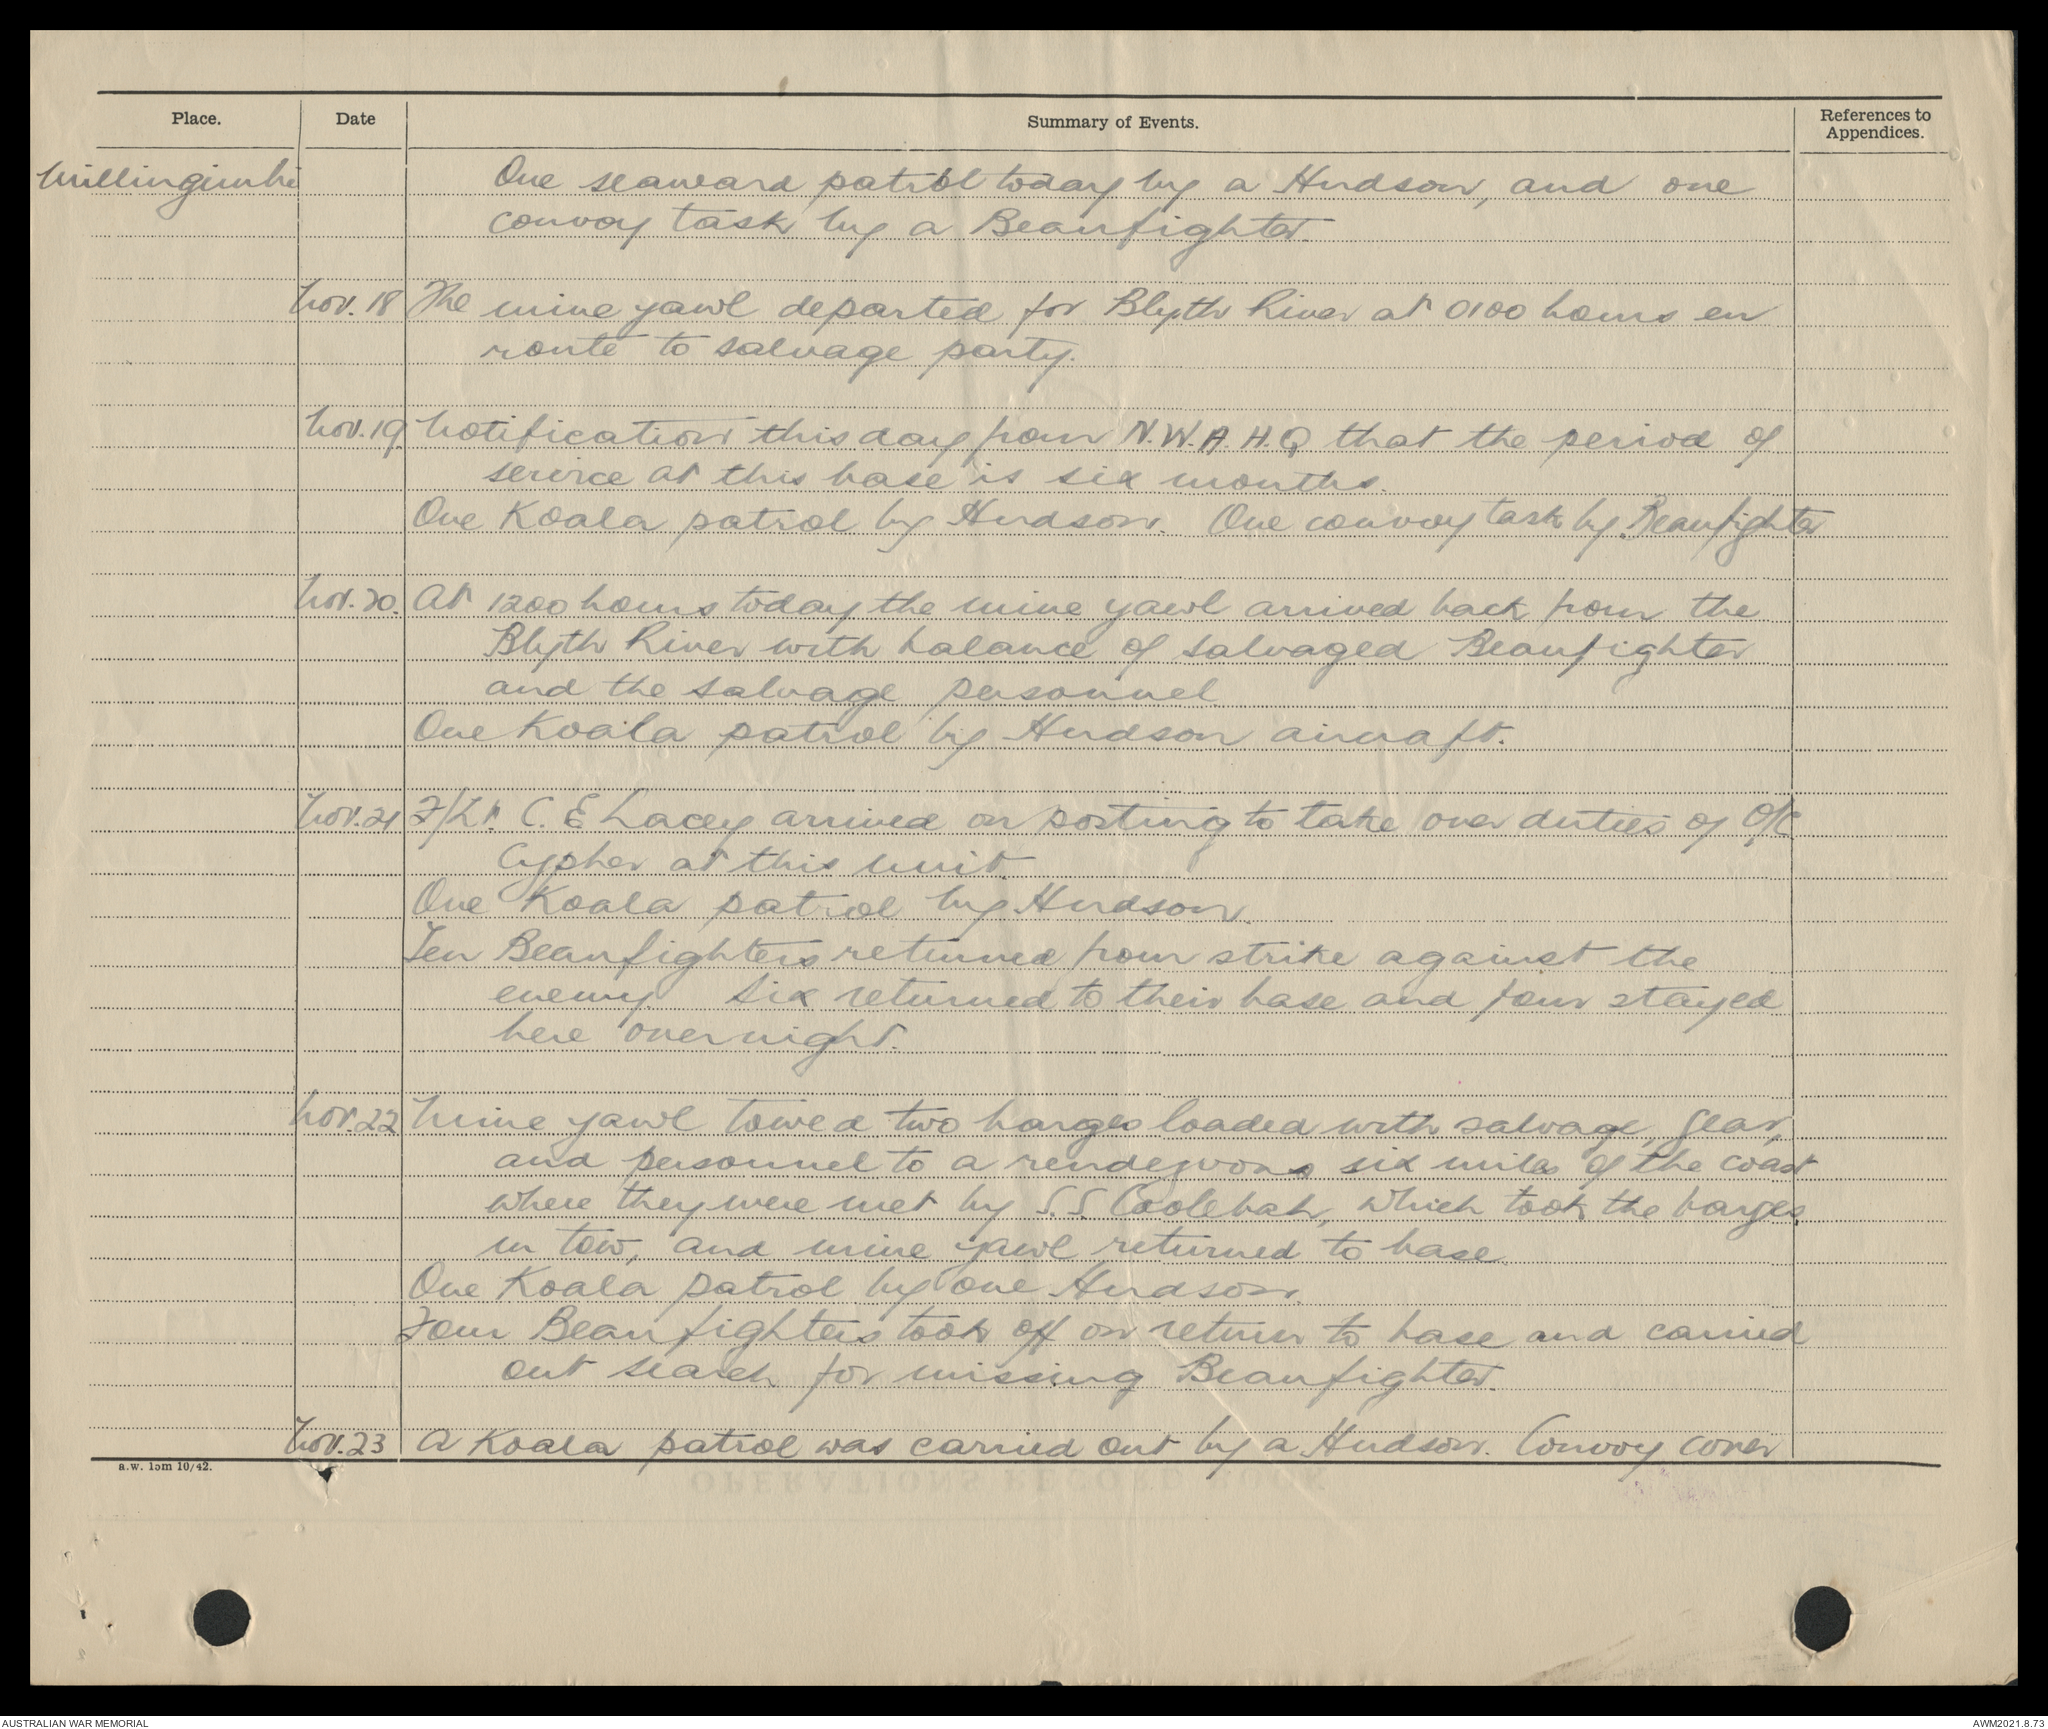 Place.
Date
Summary of Events.
References to
Appendices.
Millingimbi
One seaward patrol today by a Hudson, and one
convoy task by a Beaufighter.
Nov. 18
The mine yawl departed for Blyth River at 0100 hours en
route to salvage party.
Nov. 19
Notification this day from N.W.A.H.Q that the period of
service at this base is six months.
One Koala patrol by Hudson. One convoy task by Beaufighter
Nov. 20.
At 1200 hours today the mine yawl arrived back from the
Blyth River with balance of salvaged Beaufighter
and the salvage personnel
One Koala patrol by Hudson aircraft.
Nov. 21
F/Lt. C. E Lacey arrived on posting to take over duties of O/C
Cypher at this unit.
One Koala patrol by Hudson.
Ten Beaufighters returned from strike against the
enemy. Six returned to their base and four stayed
here overnight.
Nov. 22
Mine yawl towed two barges loaded with salvage, gear,
and personnel to a rendezvous six miles of the coast
where they were met by S.S. Coolebah, which took the barges
in tow, and mine yawl returned to base.
One Koala patrol by one Hudson.
Four Beaufighters took off on return to base and carried
out search for missing Beaufighter.
Nov. 23
A Koala patrol was carried out by a Hudson. Convoy cover
a.w. 15m 10/42.
OPERATIONS RECORD BOOK
AUSTRALIAN WAR MEMORIAL
AWM2021.8.73